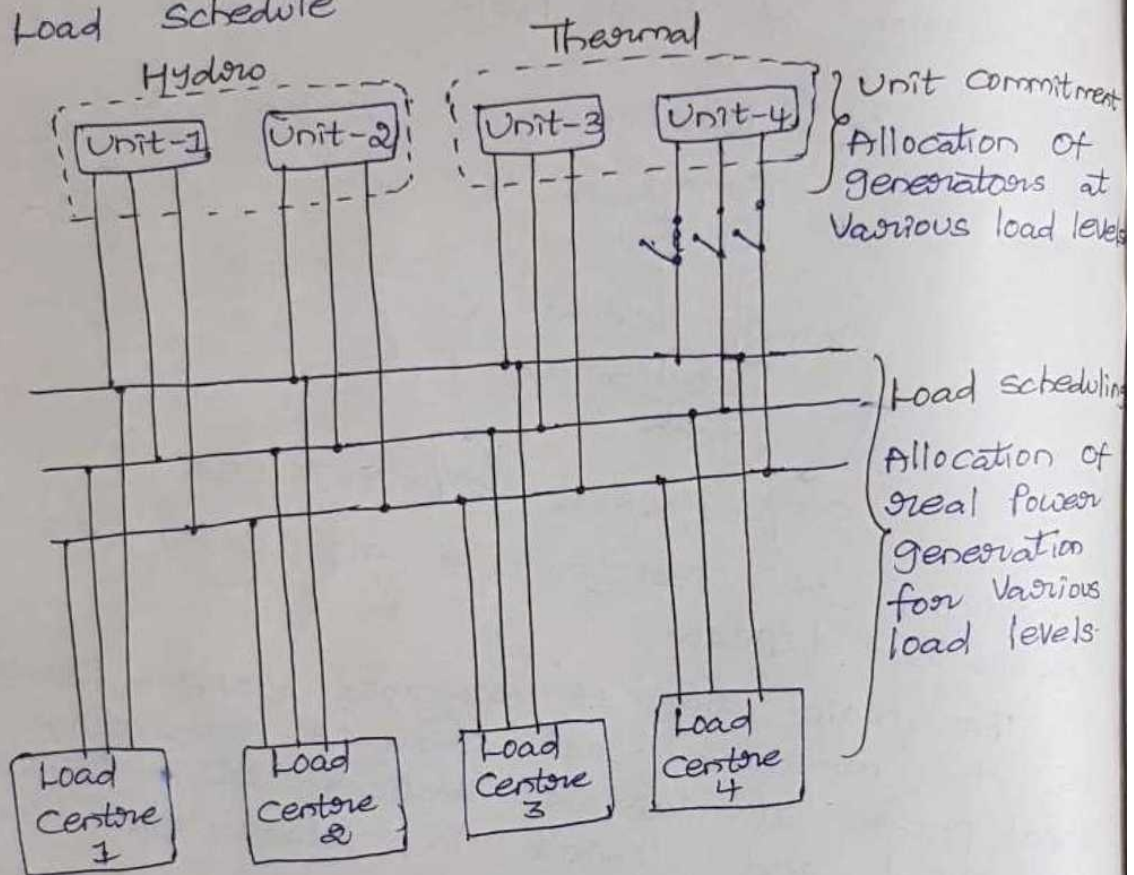 Load Schedule
Hydro
Thermal
Unit-1
Unit-2
Unit-3
Unit-4
Unit Commitment
Allocation of
generators at
Various load levels
Load scheduling
Allocation of
real Power
generation
for Various
load levels.
Load
Centre
1
Load
Centre
2
Load
Centre
3
Load
Centre
4